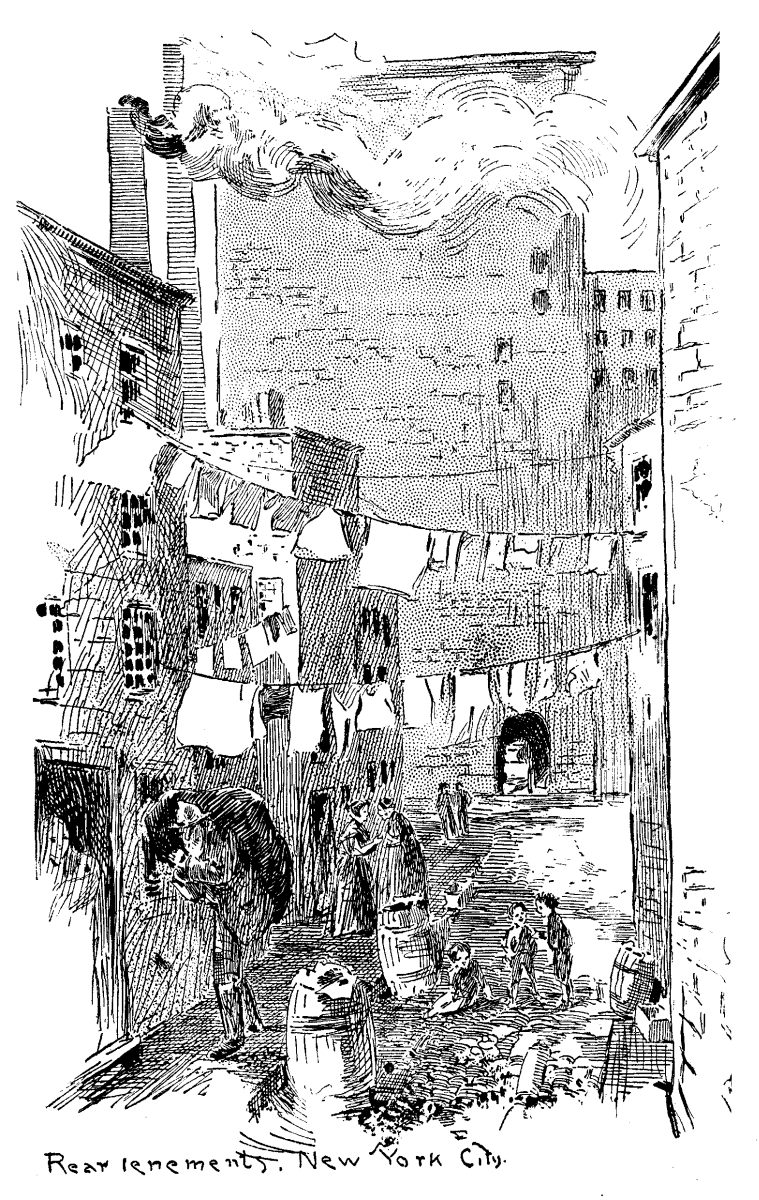 Rear tenements, New York City.